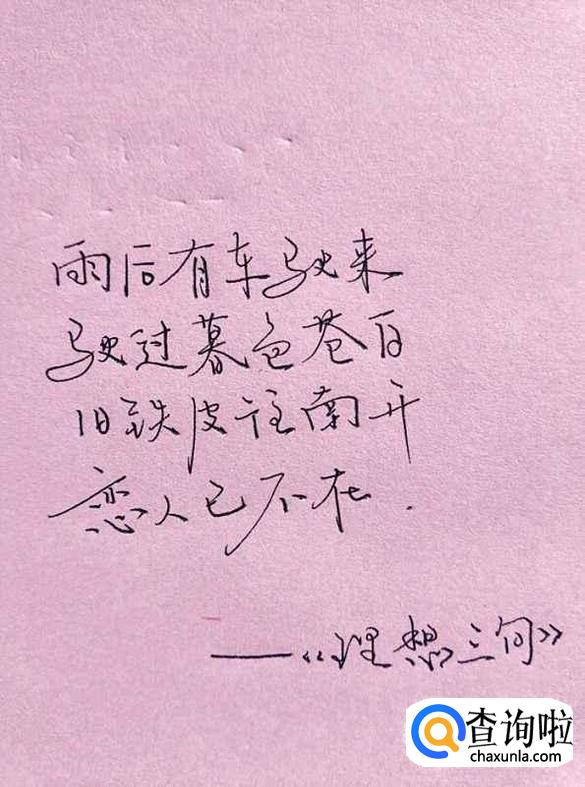 雨后有车驶来
驶过暮色苍白
旧铁皮往南开
恋人已不在.
——《理想三旬》
查询啦
chaxunla.com